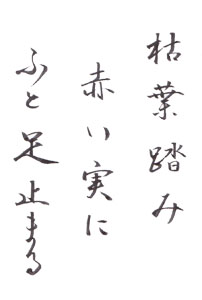 枯葉踏み
赤い実に
ふと足止まる